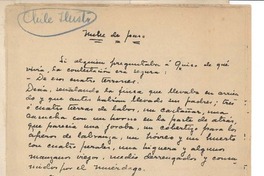 Chile Ilustr.
Meke de
Si alguien preguntaba a Quico de qué
vivía, la contestación era segura:
— De esos cuatro terrones.
Decía, señalando la finca que llevaba en arrien-
do y que antes habían llevado sus padres; tres
o cuatro tierras de labor, un castañar, una
cancha con un horno en la parte de atrás,
que parecía una joroba, un cobertizo para los
aperos de labranza, un hórreo y un huerto
con cuatro perales, una higuera y algunos
manzanos viejos, medio derrengados y comi-
dos por el muérdago.